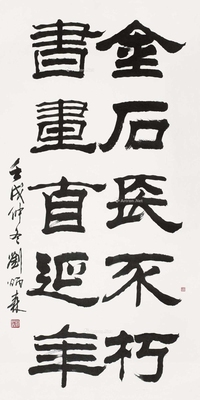 金石長不朽
書畫直延年
壬戌仲冬劉炳森